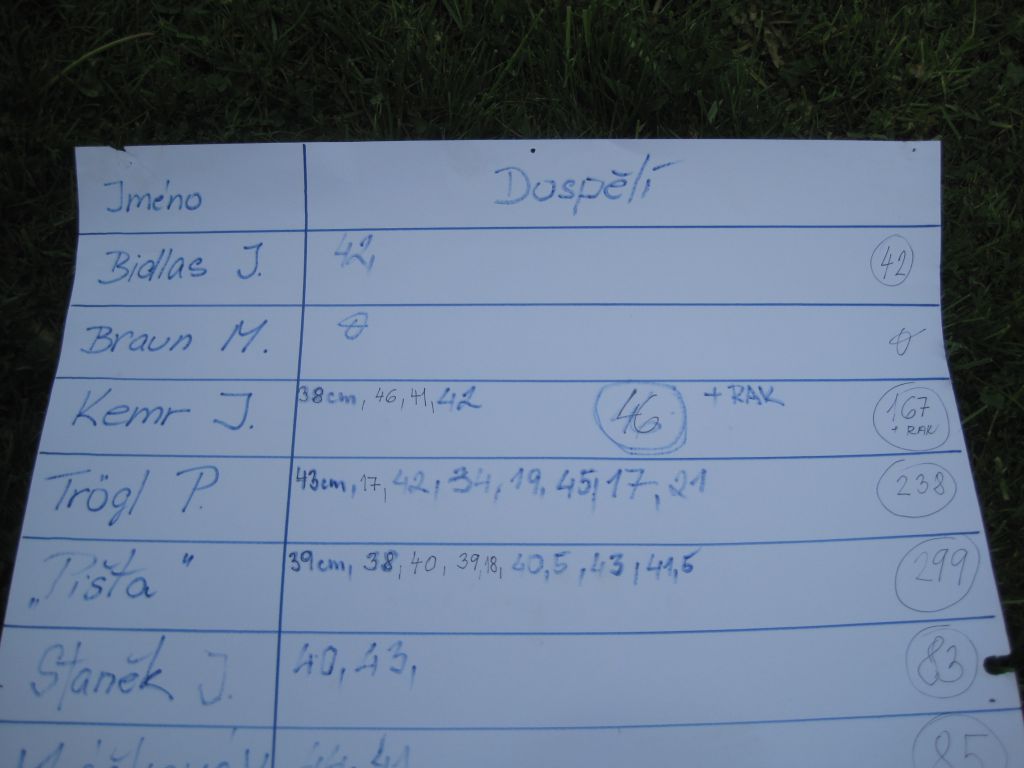 Jméno Dospělí
Bidlas J. 42, 42
Braun M. 0 0
Kemr J. 38cm, 46, 41, 42 46 + RAK 167
+ RAK
Trögl P. 43cm, 17, 42, 34, 19, 45, 17, 21 238
„Pišta“ 39cm, 38, 40, 39, 18, 40,5, 43, 41,5 299
Staněk J. 40, 43, 83
44, 41 85